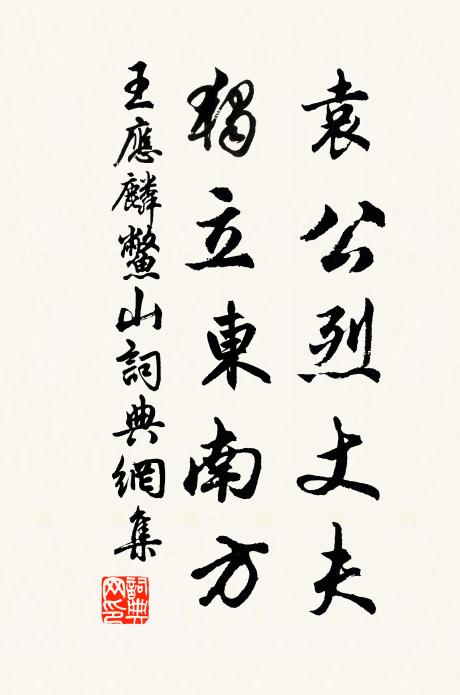 袁公烈丈夫
獨立東南方
王應麟鱉山詞典網集
詞典網印